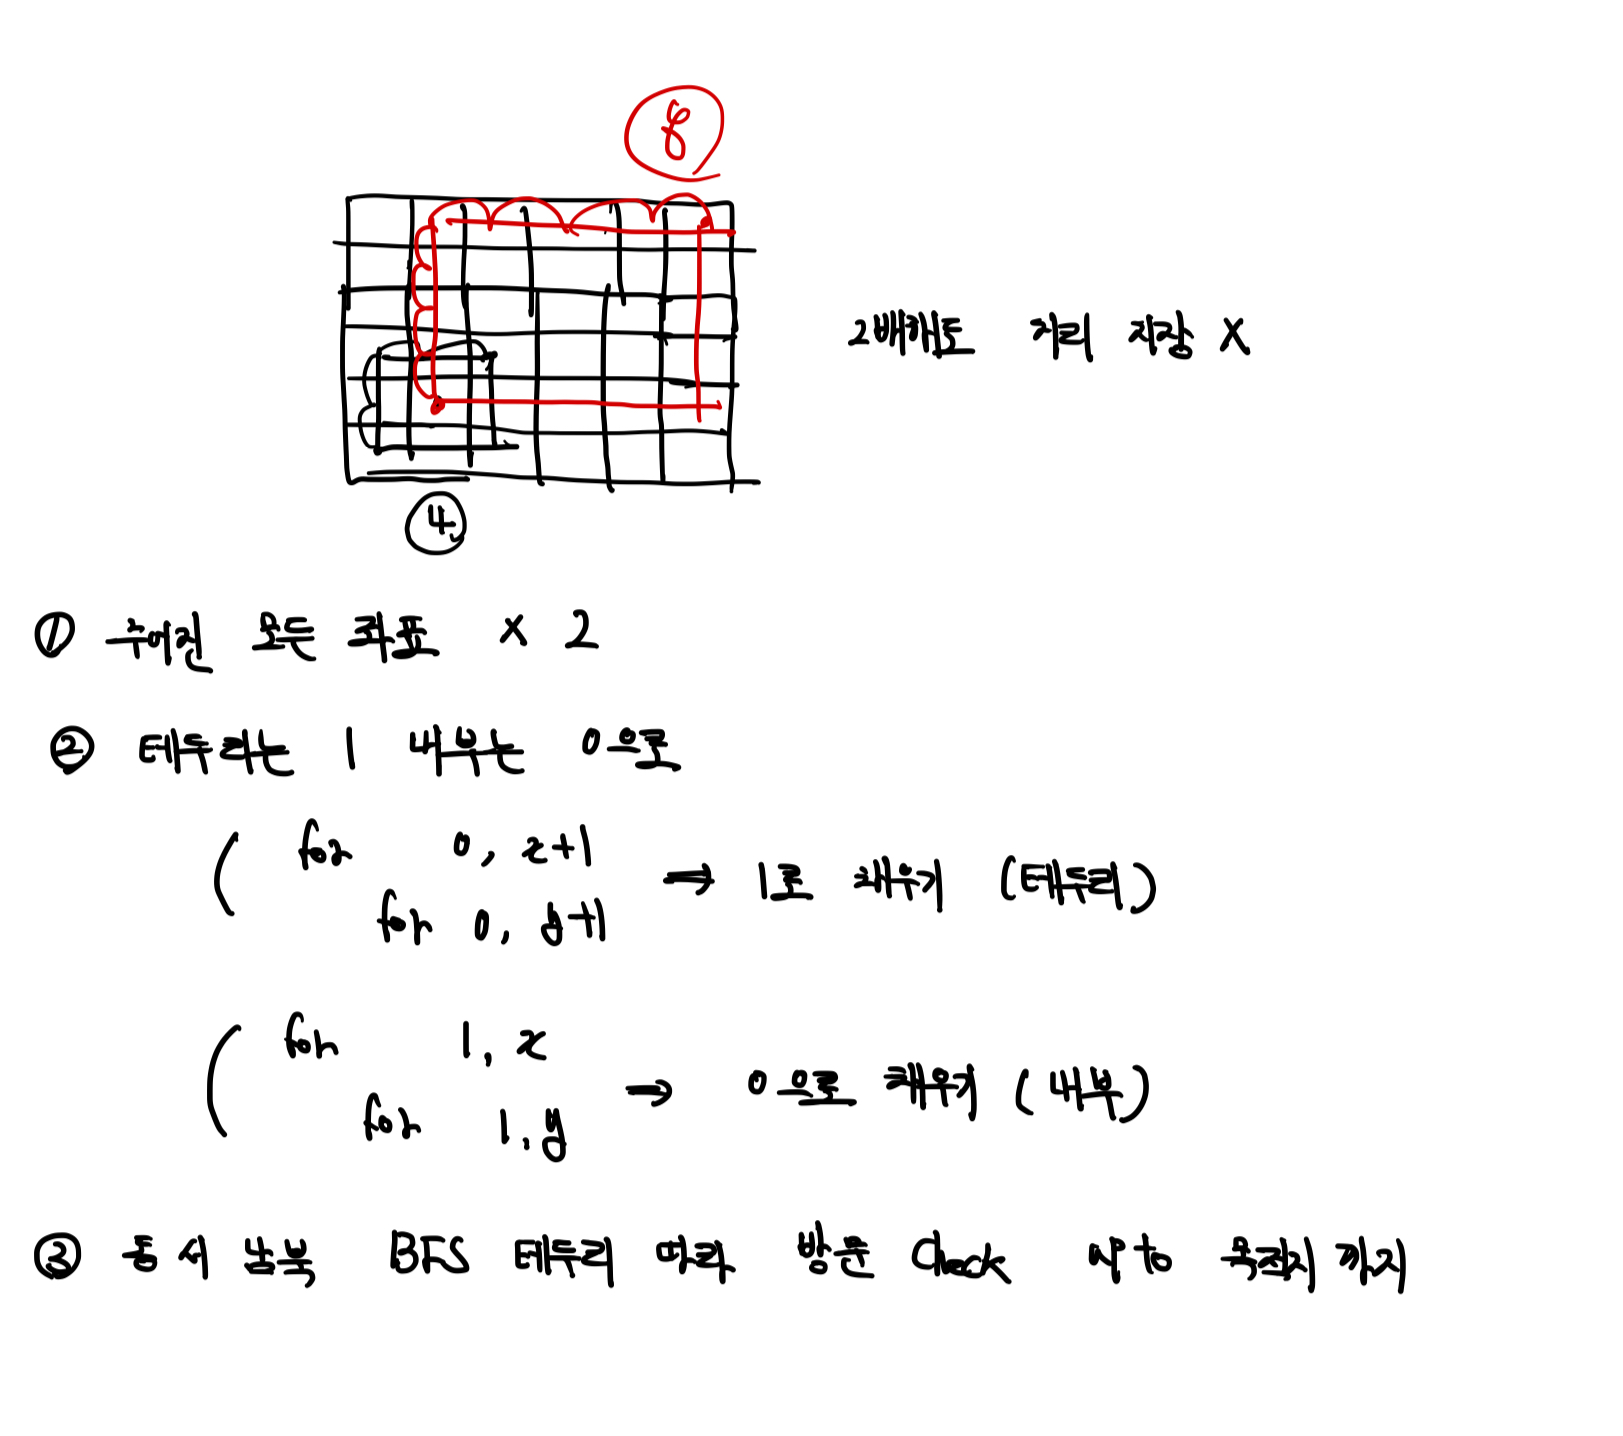 8
2배해도 처리 지장 X
4
① 주어진 모든 좌표 x 2
② 테두리는 1 내부는 0으로
( for 0, x+1
for 0, y+1
⇒ 1로 채우기 (테두리)
( for 1, x
for 1, y
⇒ 0으로 채우기 (내부)
③ 동서남북 BFS 테두리 따라 방문 Check up to 목적지 까지